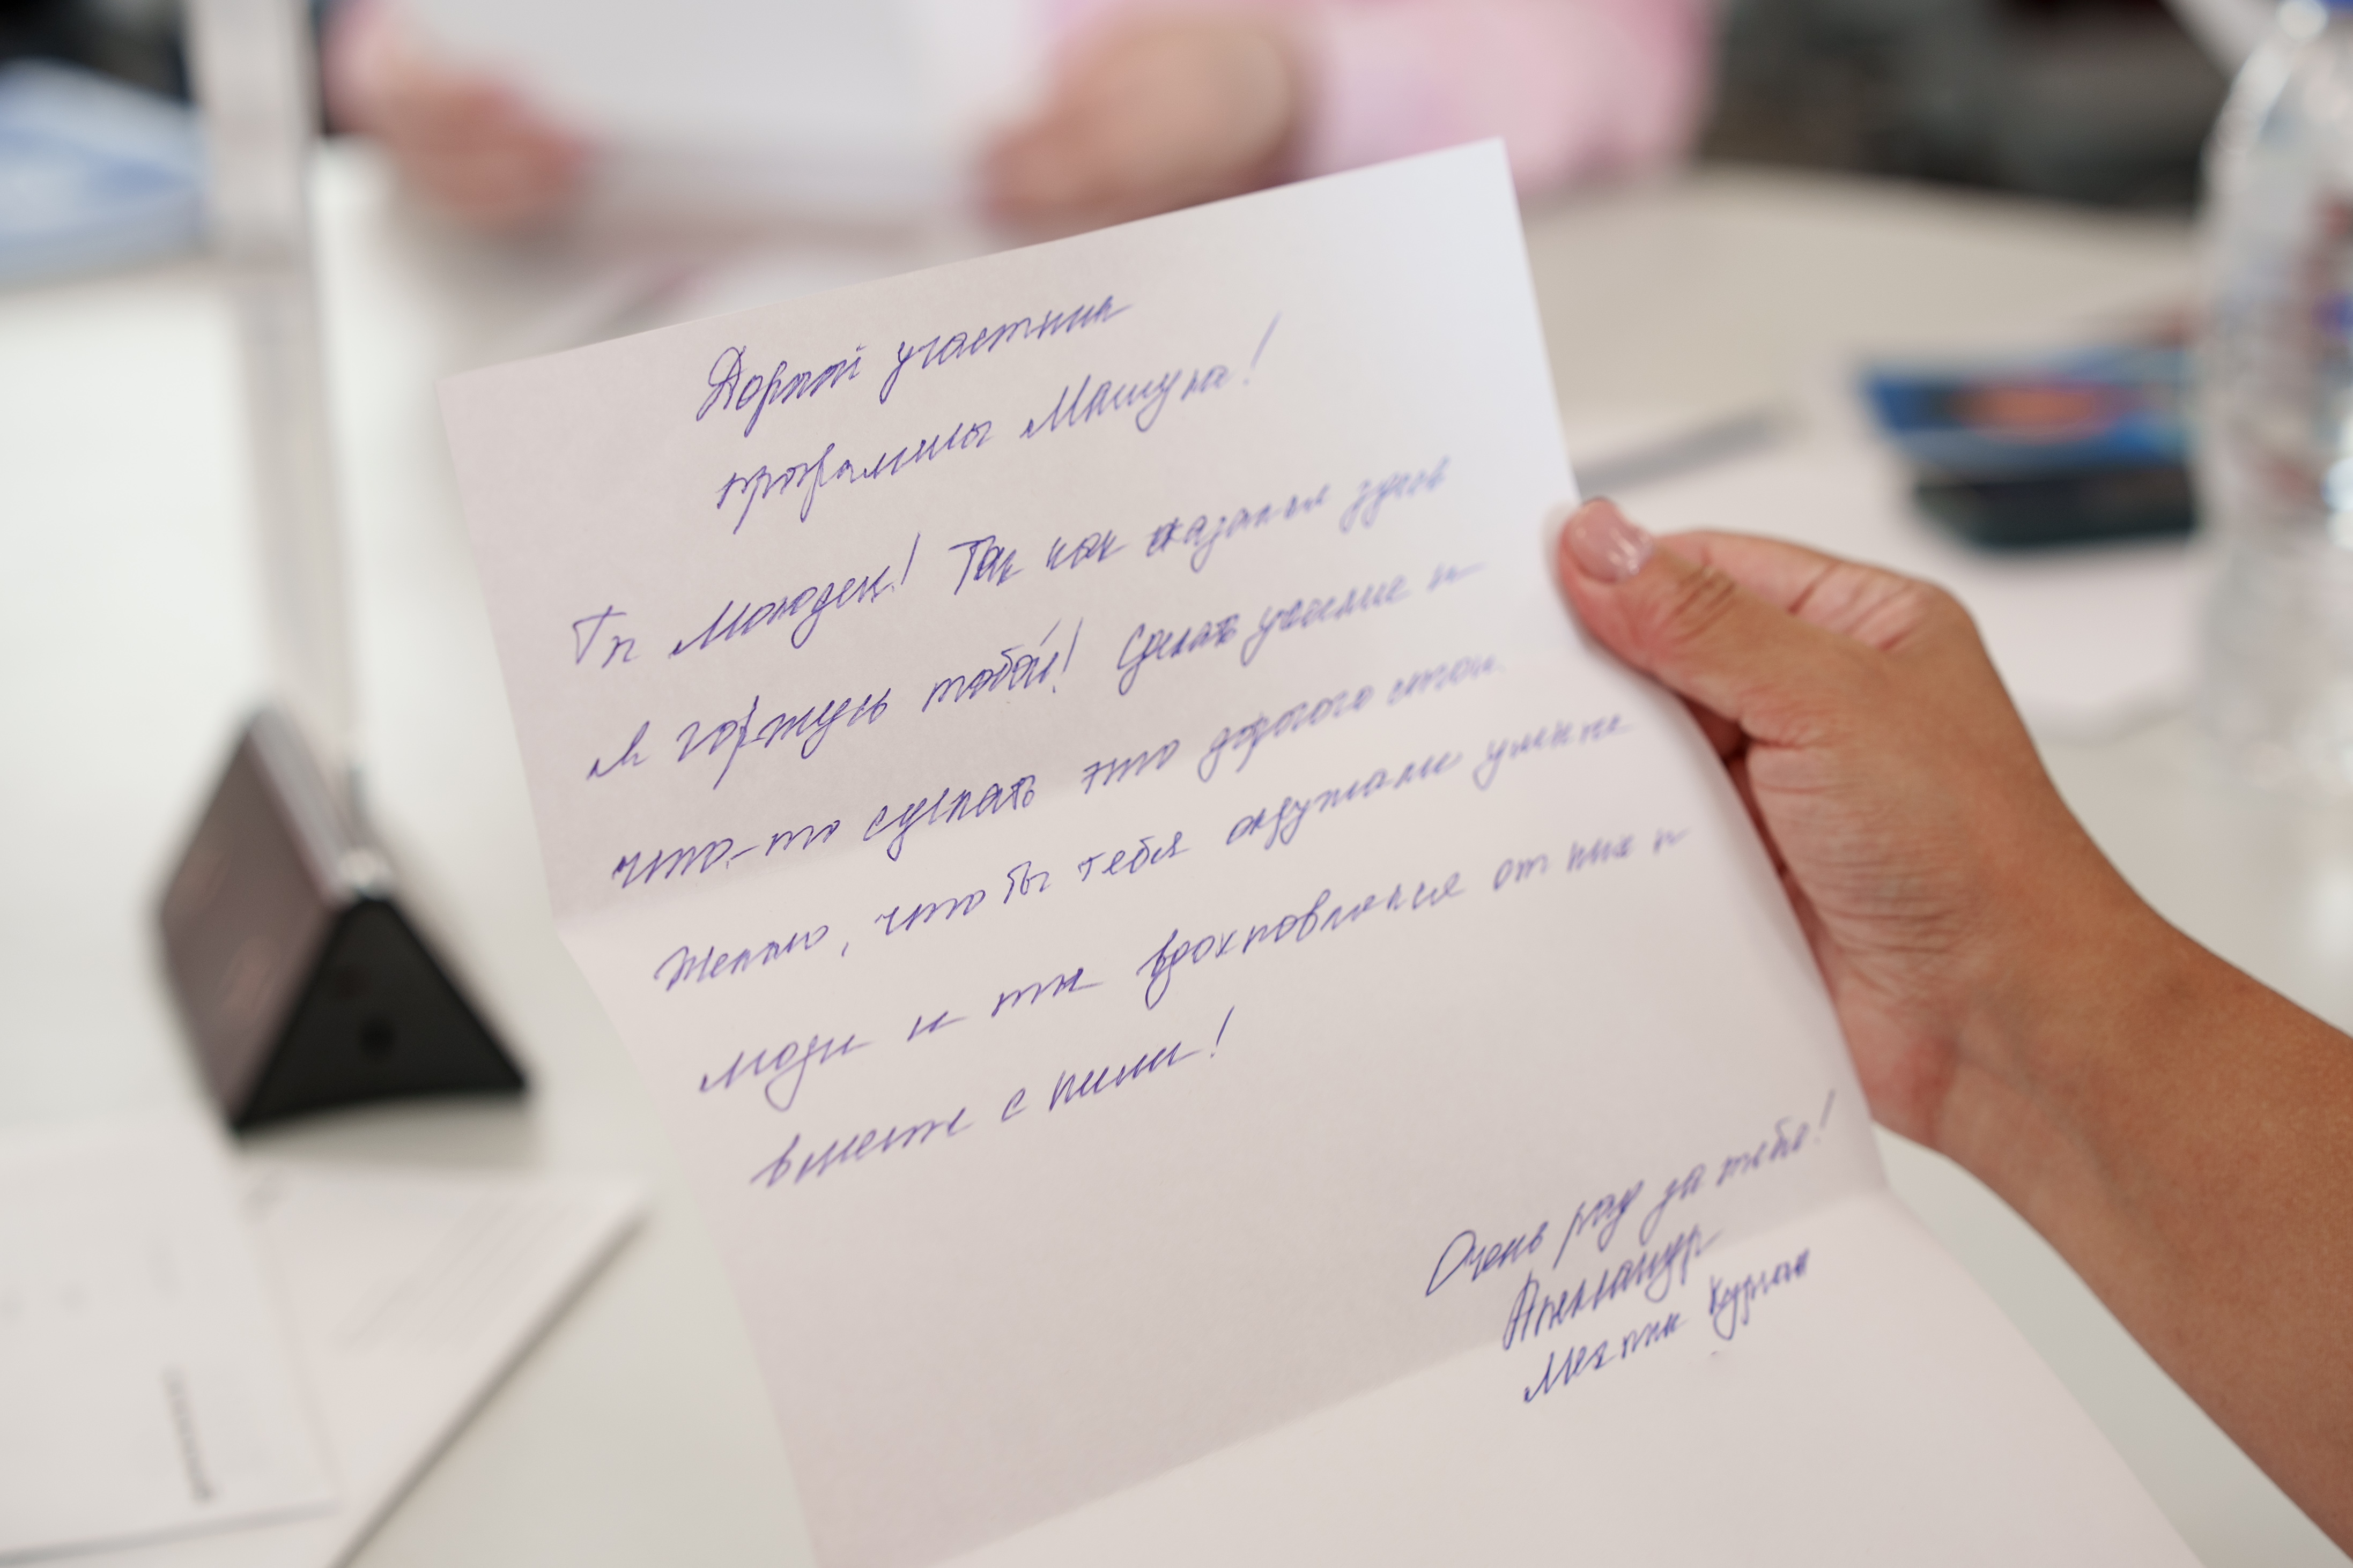 Дорогой участник
программы Машука!
Ты молодец! Так как оказался здесь
Я горжусь тобой! Сделать усилие и
что-то сделать это дорогого стои.
Желаю, чтобы тебя окружали умные
люди и ты вдохновлялся от них и
вместе с ними!
Очень рад за тебя!
Александр
Мегпик